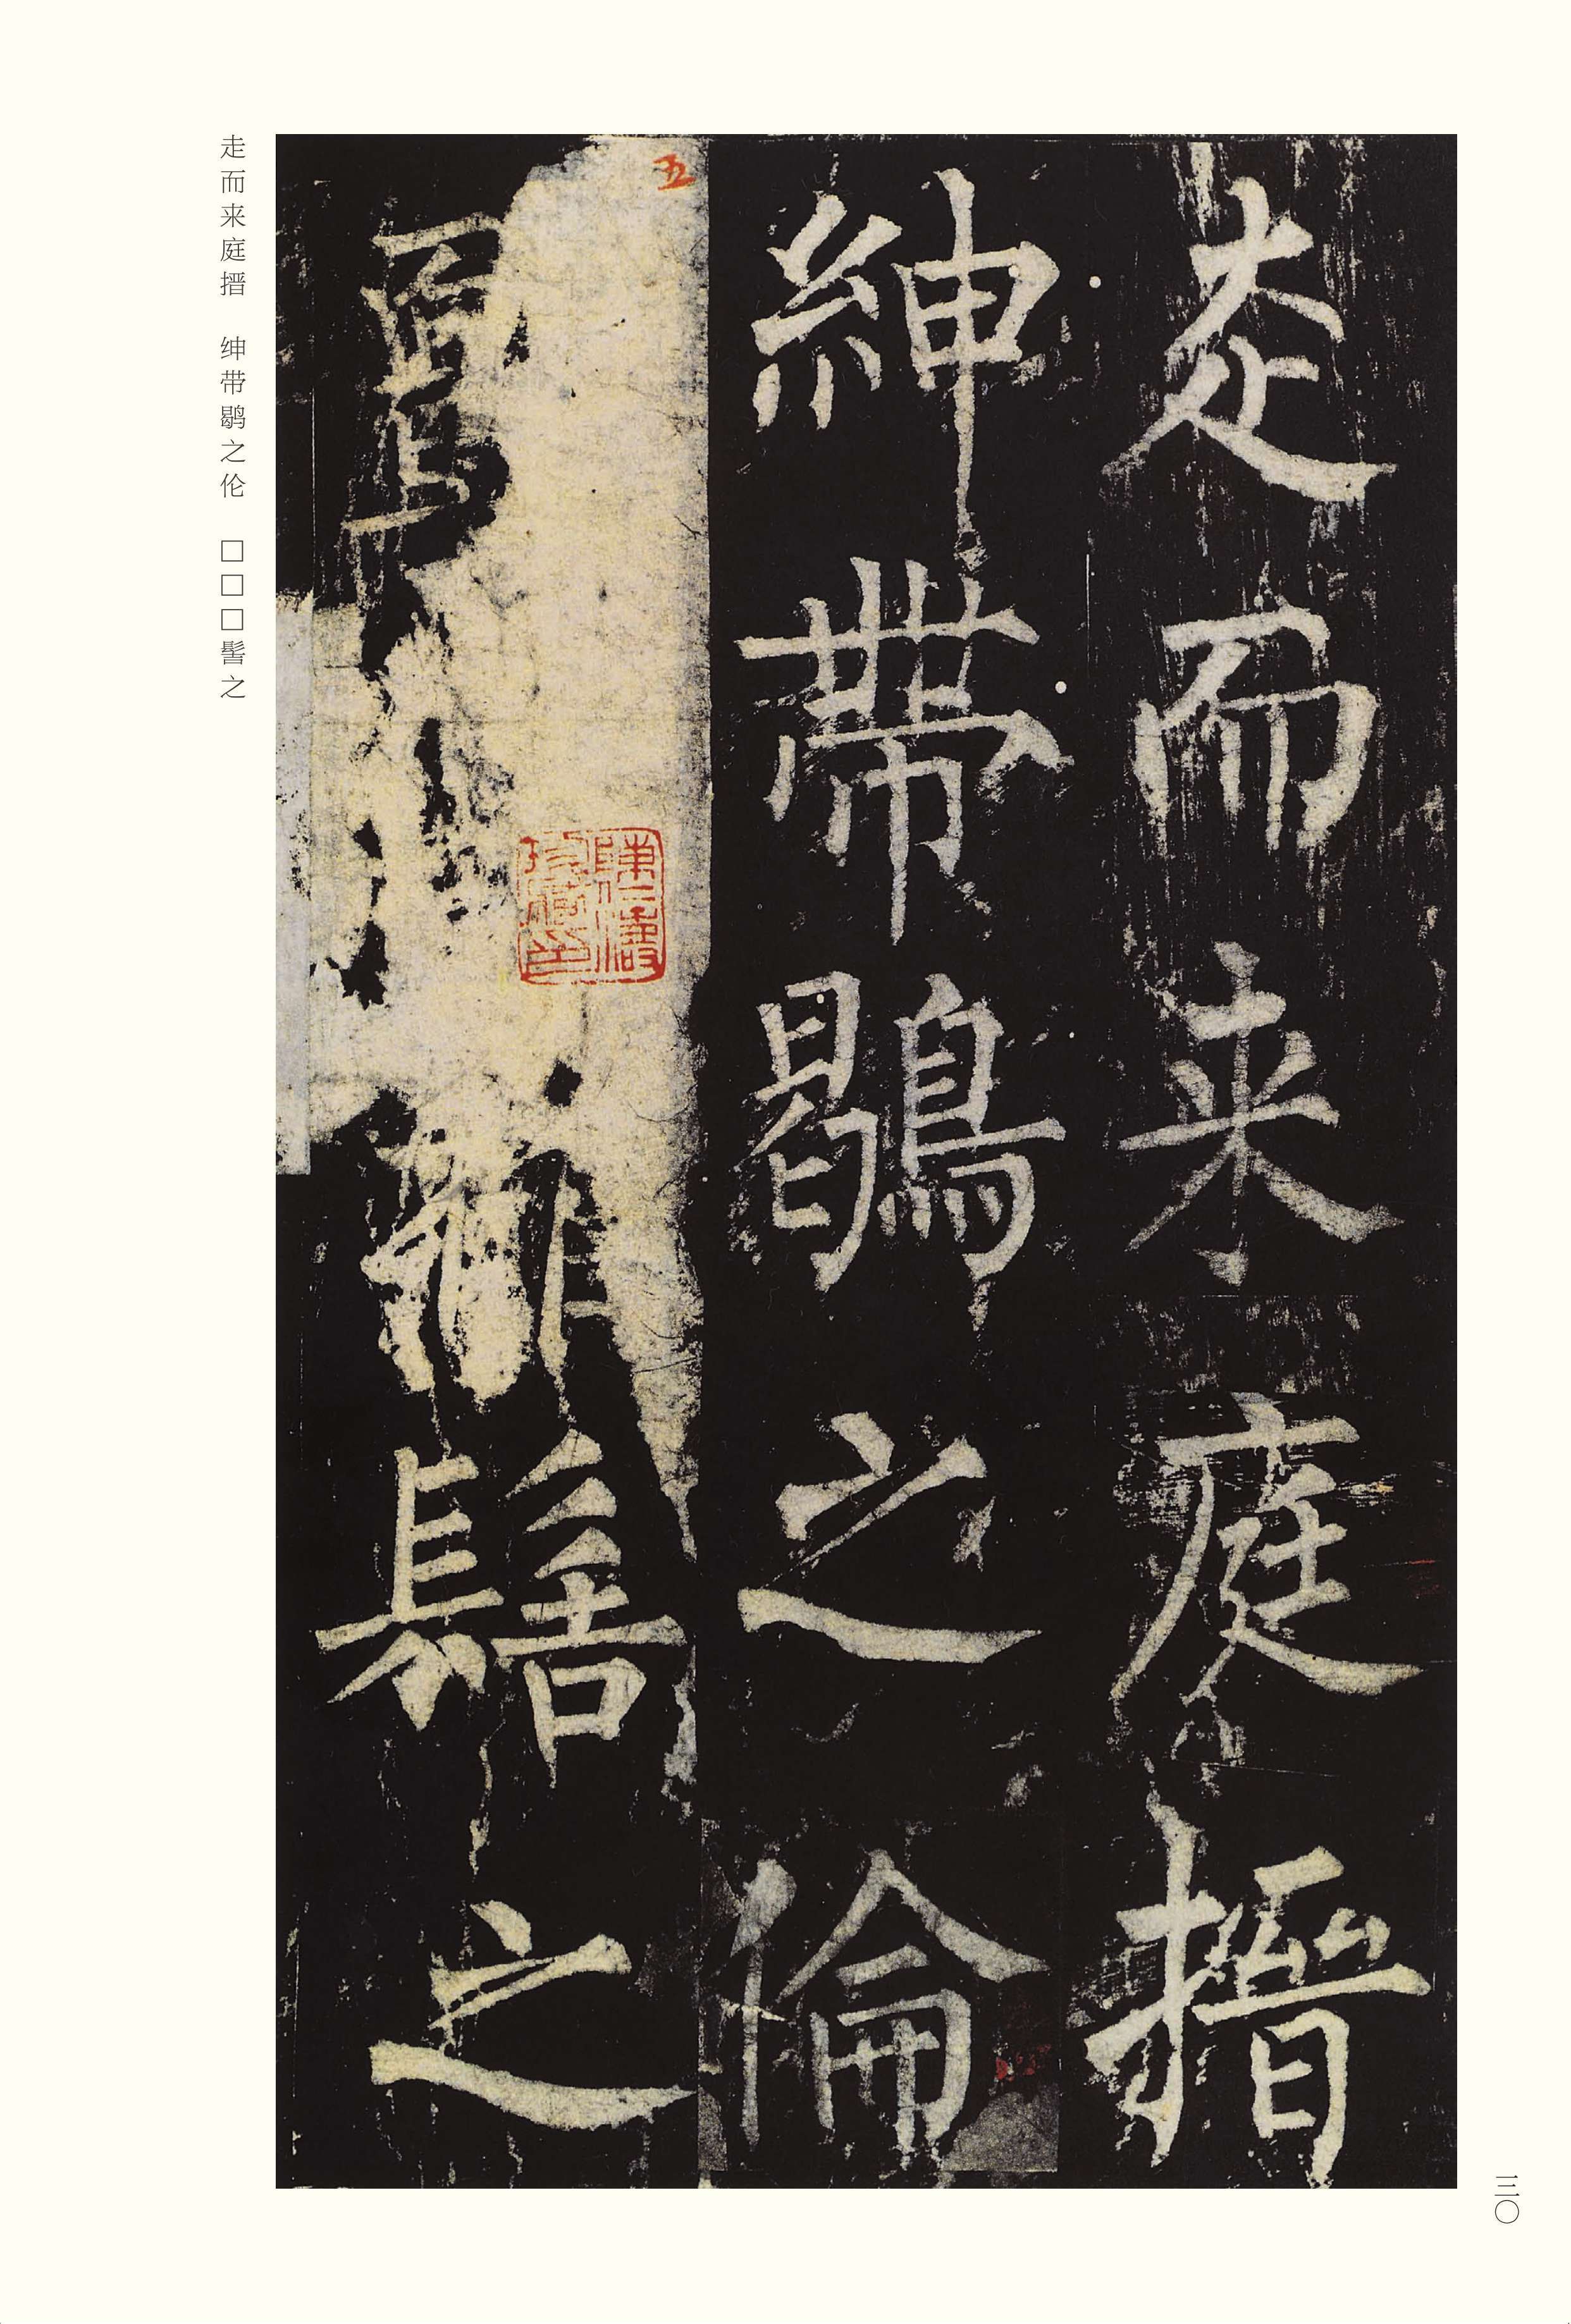 走而来庭搢
紳帶鶡之倫
髻之
五
走而来庭搢　绅带鹖之伦　□□□髻之
三〇